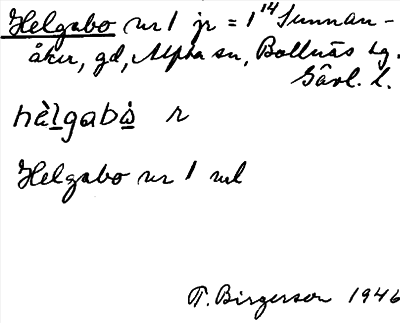 Helgabo nr 1 jr = 1¹⁴ Sunnan-
åker, gd, Alfta sn, Bollnäs tg.
Gävl. l.
hèlgabò r
Helgabo nr 1 ul
T. Birgerson 1946